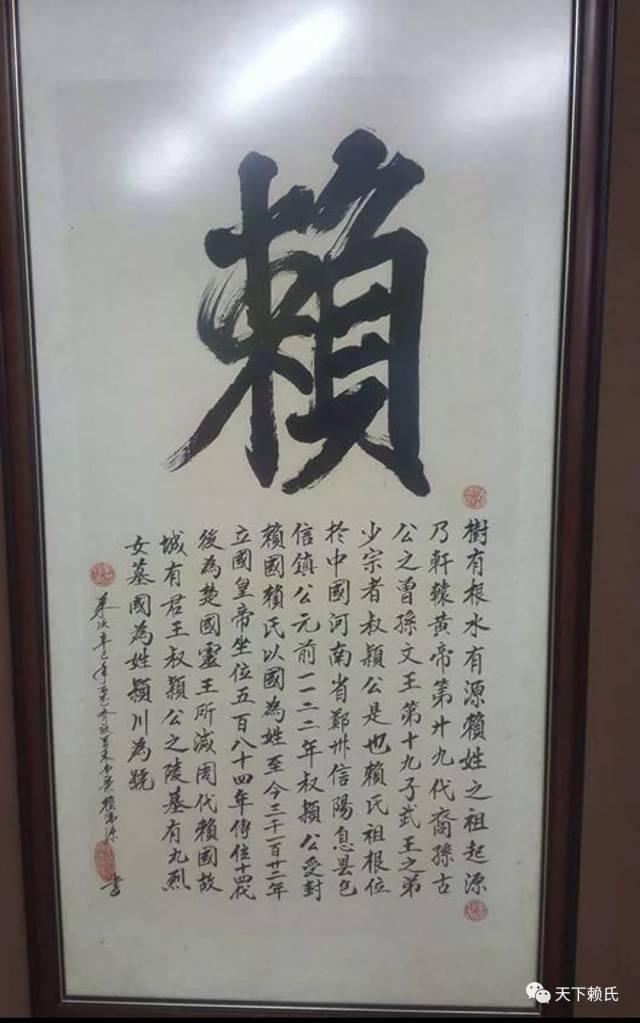 賴
樹有根水有源賴姓之祖起源
乃軒轅黃帝第廾九代裔孫古
公之曾孫文王第十九子武王之弟
少宗者叔穎公是也賴氏祖根位
於中國河南省鄭卅信陽息县包
信鎮公元前一一二二年叔穎公受封
賴國賴氏以國為姓至今三千一百廿二年
立國皇帝坐位五百八十四年傳位十四代
後為楚國靈王所滅周代賴國故
城有君王叔穎公之陵墓有九烈
女墓國為姓穎川為號
辛巳年
書
天下赖氏